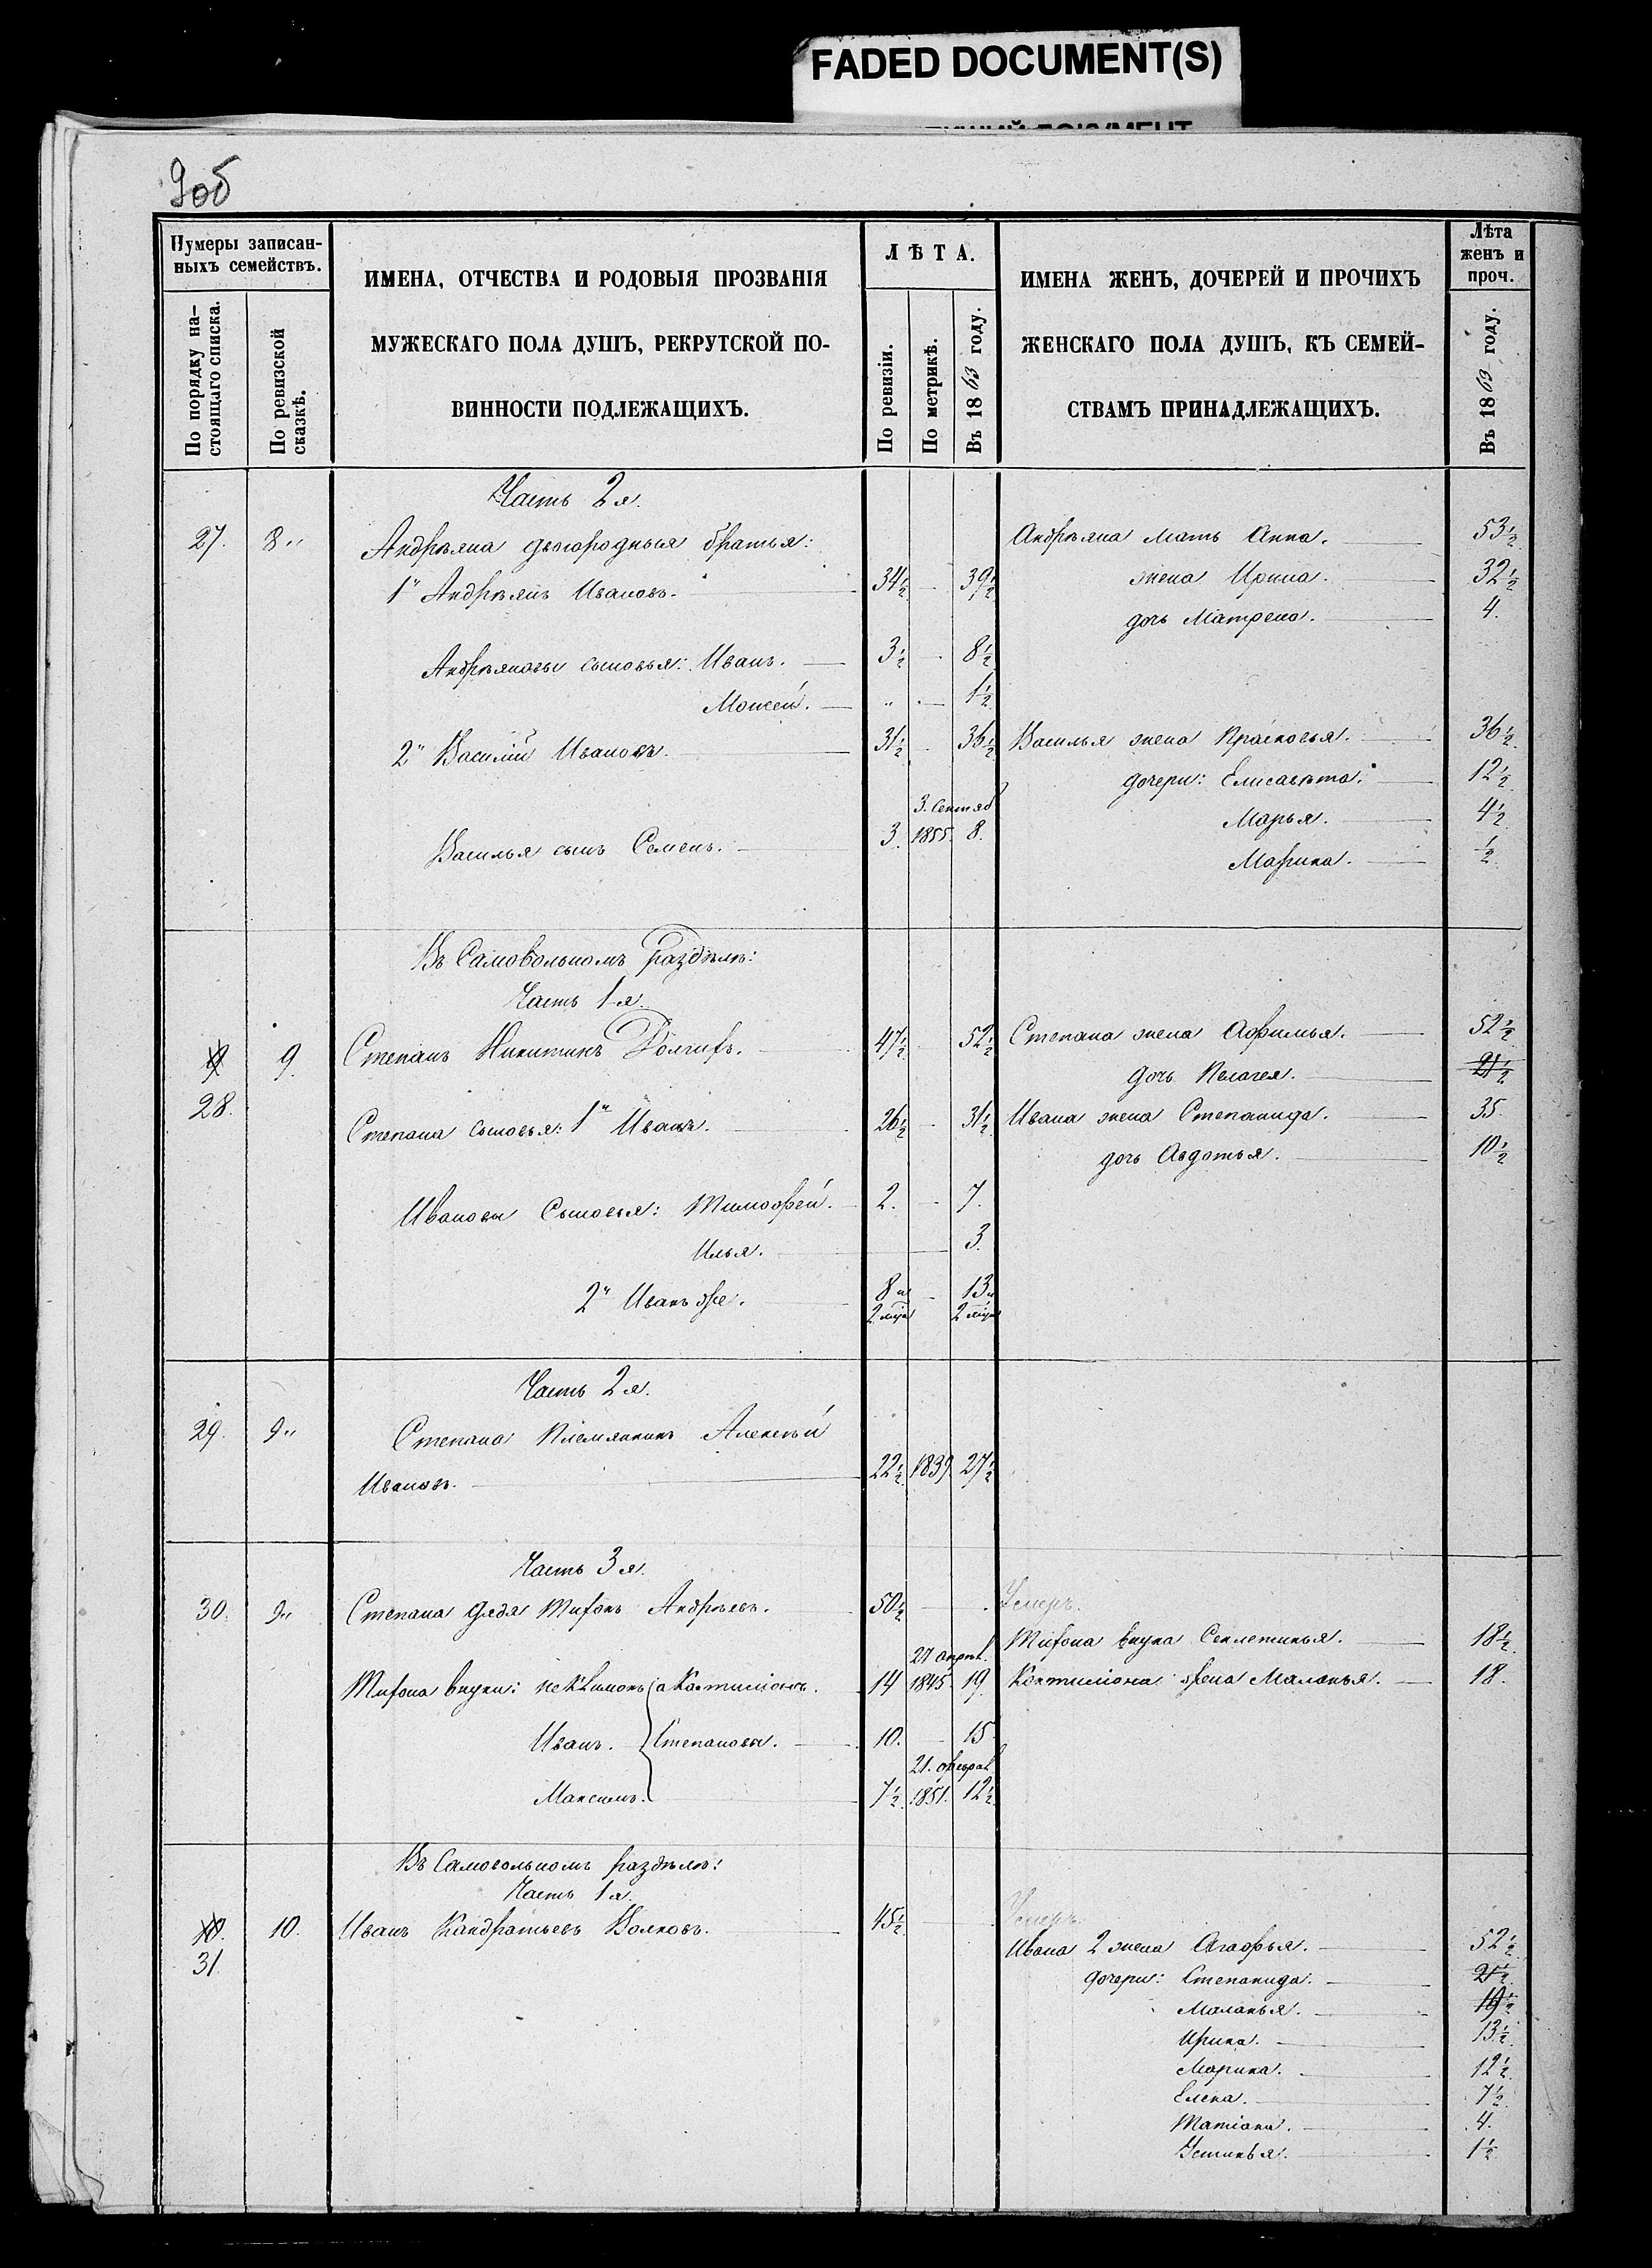 FADED DOCUMENT(S)
9об
Нумеры записан-
ныхъ семействъ.
По порядку на-
стоящаго списка.
По ревизской
сказкѣ.
ИМЕНА, ОТЧЕСТВА И РОДОВЫЯ ПРОЗВАНІЯ
МУЖЕСКАГО ПОЛА ДУШЪ, РЕКРУТСКОЙ ПО-
ВИННОСТИ ПОДЛЕЖАЩИХЪ.
ЛѢТА.
По ревизіи.
По метрикѣ.
Въ 1863 году.
ИМЕНА ЖЕНЪ, ДОЧЕРЕЙ И ПРОЧИХЪ
ЖЕНСКАГО ПОЛА ДУШЪ, КЪ СЕМЕЙ-
СТВАМЪ ПРИНАДЛЕЖАЩИХЪ.
Лѣта
женъ и
проч.
Въ 1863 году.
Часть 2я.
27. 8„ Андрѣяна двоюродныя братья: Андрѣяна мать Анна. 53½
1„ Андрѣянъ Ивановъ. 34½ 39½ жена Ирина. 32½
дочь Матрена. 4.
Андрѣяновы сыновья: Иванъ. 3½ 8½
Моисей. „ 1½
2„ Василій Ивановъ. 31½ 36½ Василья жена Прасковья. 36½
дочери: Елисавѣта. 12½
3. Сентяб
Василья сынъ Семенъ. 3. 1855. 8. Марья. 4½
Марина. ½
Въ Самовольномъ раздѣлѣ:
Часть 1я.
9 9 Степанъ Никитинъ Долгихъ. 47½ 52½ Степана жена Афимья. 52½
дочь Пелагея. 21½
28. Степана сыновья: 1„ Иванъ. 26½ 31½ Ивана жена Степанида. 35.
дочь Авдотья. 10½
Ивановы Сыновья: Тимофей. 2. 7.
Илья. 3.
2„ Иванъ же. 8 и 13 и
2 мѣс 2 мѣс
Часть 2я.
29. 9„ Степана племянникъ Алексѣй
Ивановъ. 22½ 1839 27½
Часть 3я.
30. 9„ Степана дядя Тифонъ Андрѣевъ. 50½ Умеръ.
Тифона внука Секлетинья. 18½
27 апрѣл.
Тифона внуки: не Климонъ а Контиліонъ. 14 1845 19. Контиліона жена Маланья. 18.
Иванъ. Степановы. 10. 15
21. феврал
Максимъ. 7½ 1851. 12½
Въ Самовольномъ раздѣлѣ:
Часть 1я.
10. 10. Иванъ Кандратьевъ Волковъ. 45½ Умеръ.
31 Ивана 2 жена Агафья. 52½
дочери: Степанида. 21½
Маланья. 19½
Ирина. 13½
Марина. 12½
Елена. 7½
Татіана. 4.
Устинья. 1½